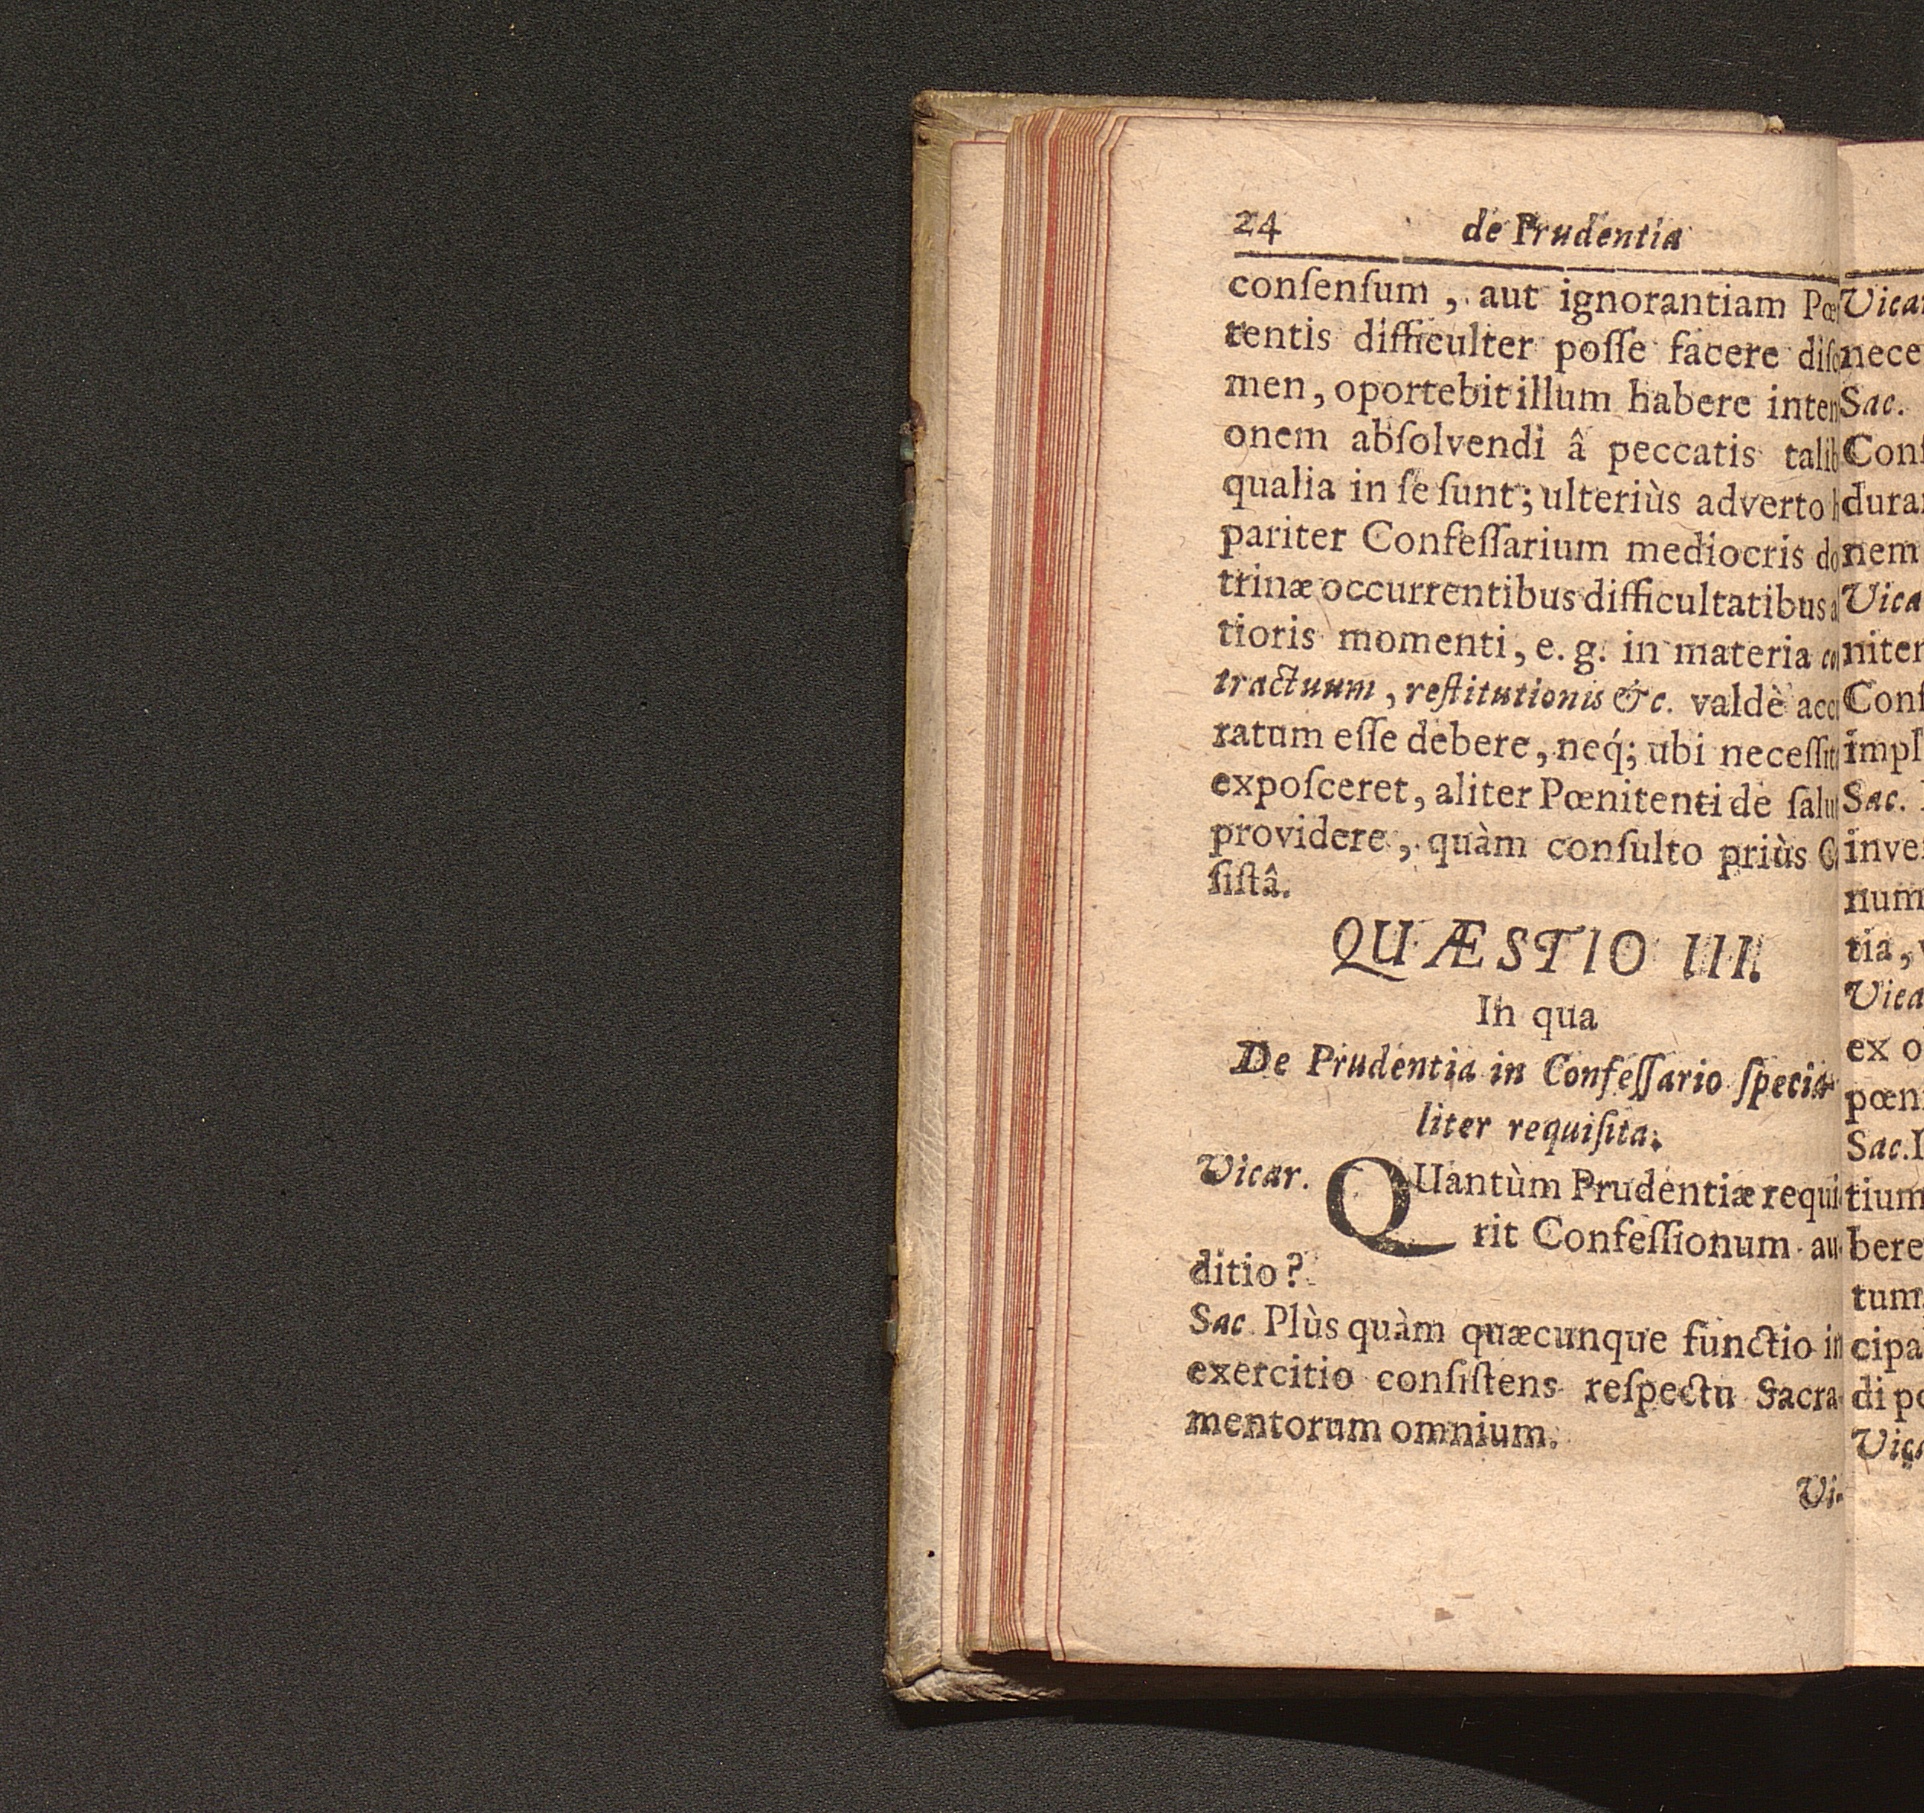 24 de Prudentia
conſenſum, aut ignorantiam Pœ
tentis difficulter poſſe facere diſc
men, oportebit illum habere inten
onem abſolvendi â peccatis talib
qualia in ſe ſunt; ulteriùs adverto
pariter Confeſſarium mediocris do
trinæ occurrentibus difficultatibus
tioris momenti, e. g. in materia co
tractuum, reſtitutionis &c. valdè accu
ratum eſſe debere, neq́; ubi neceſſit
expoſceret, aliter Pœnitenti de ſalu
providere, quàm conſulto priùs C
ſiſtâ.
QUÆSTIO III.
In qua
De Prudentia in Confeſſario ſpecia-
liter requiſita.
Vicar. QUantùm Prudentiæ requi
rit Confeſſionum au-
ditio?
Sac. Plùs quàm quæcunque functio in
exercitio conſiſtens reſpectu Sacra-
mentorum omnium.
Vi-
Vica
nece
Sac.
Conf
dura
nem
Vica
niten
Conf
impl
Sac.
inve
num
tia,
Vica
ex o
pœn
Sac. I
tium
bere
tum
cipa
di po
Vica